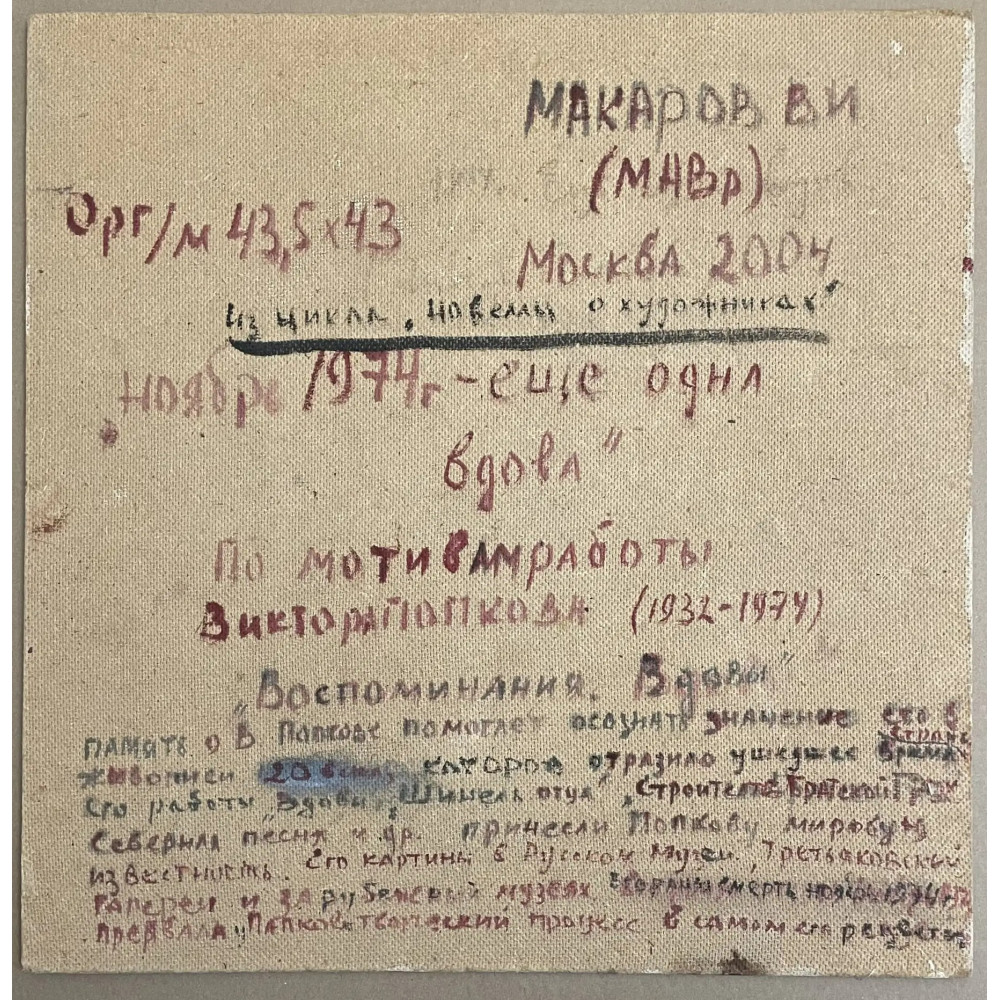 МАКАРОВ ВИ
(МАВр)
Орг/м 43,5х43
Москва 2004
Из цикла „новеллы о художниках"
„ноябрь 1974г - еще одна
вдова"
По мотивам работы
Виктора Попкова (1932-1974)
„Воспоминания. Вдовы"
память о В Попкове помогает осознать значение его в
живописи 20 века, которое отразило ушедшее время
Его работы „Вдовы", „Шинель отца", „Строители Братской ГЭС"
Северная песня и др. принесли Попкову мировую
известность. Его картины в Русском музеи, Третьяковской
галереи и зарубежный музеях смерть ноябрь 1974г
прервала Попкова творческий процесс в самом его расцвете